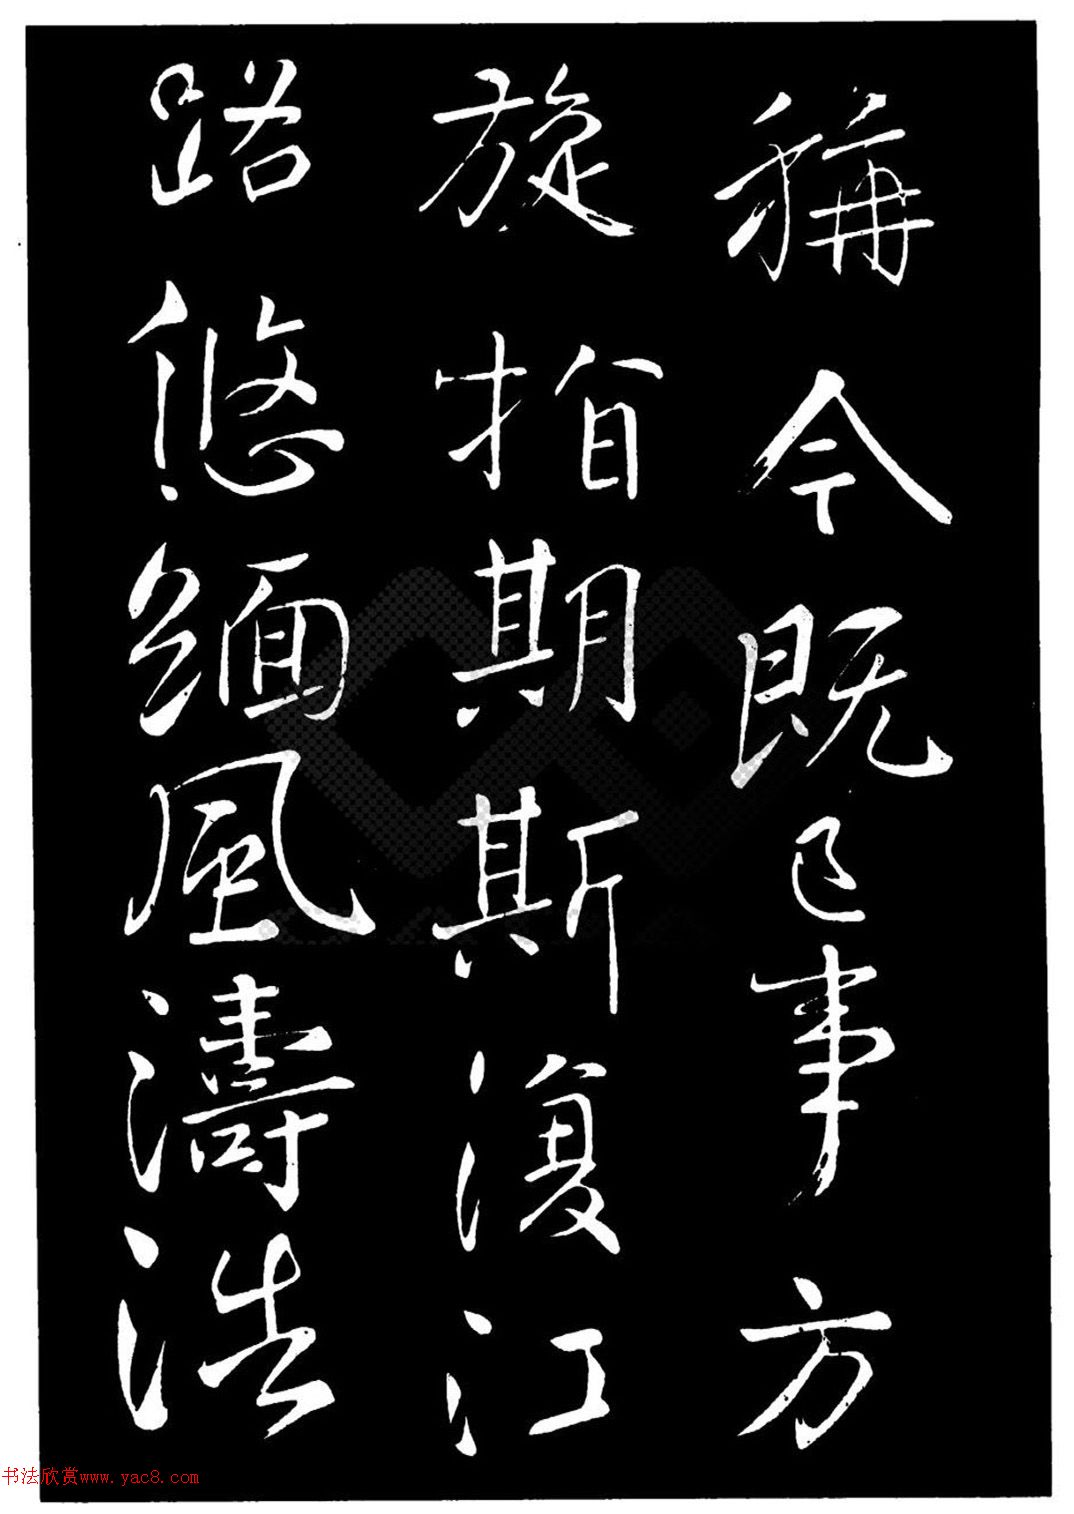 稱今既已事方
旋指期斯復江
路悠緬風濤浩
书法欣赏www.yac8.com